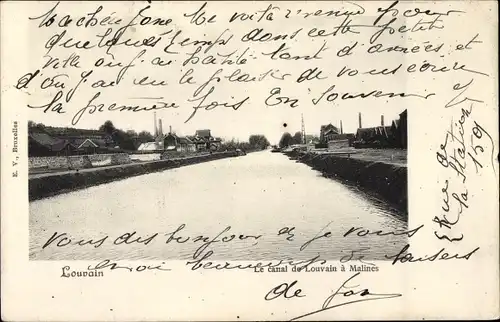 Ma chère Jane Me voilà revenue pour
quelques temps dans cette petite
ville où j'ai habité tant d'années et
d'où j'ai eu le plaisir de vous écrire
la première fois En souvenir
je vous dis bonjour et je vous
envoi beaucoup de baisers
de
Rue de
la Station
159
E. V., Bruxelles
Louvain
Le canal de Louvain à Malines